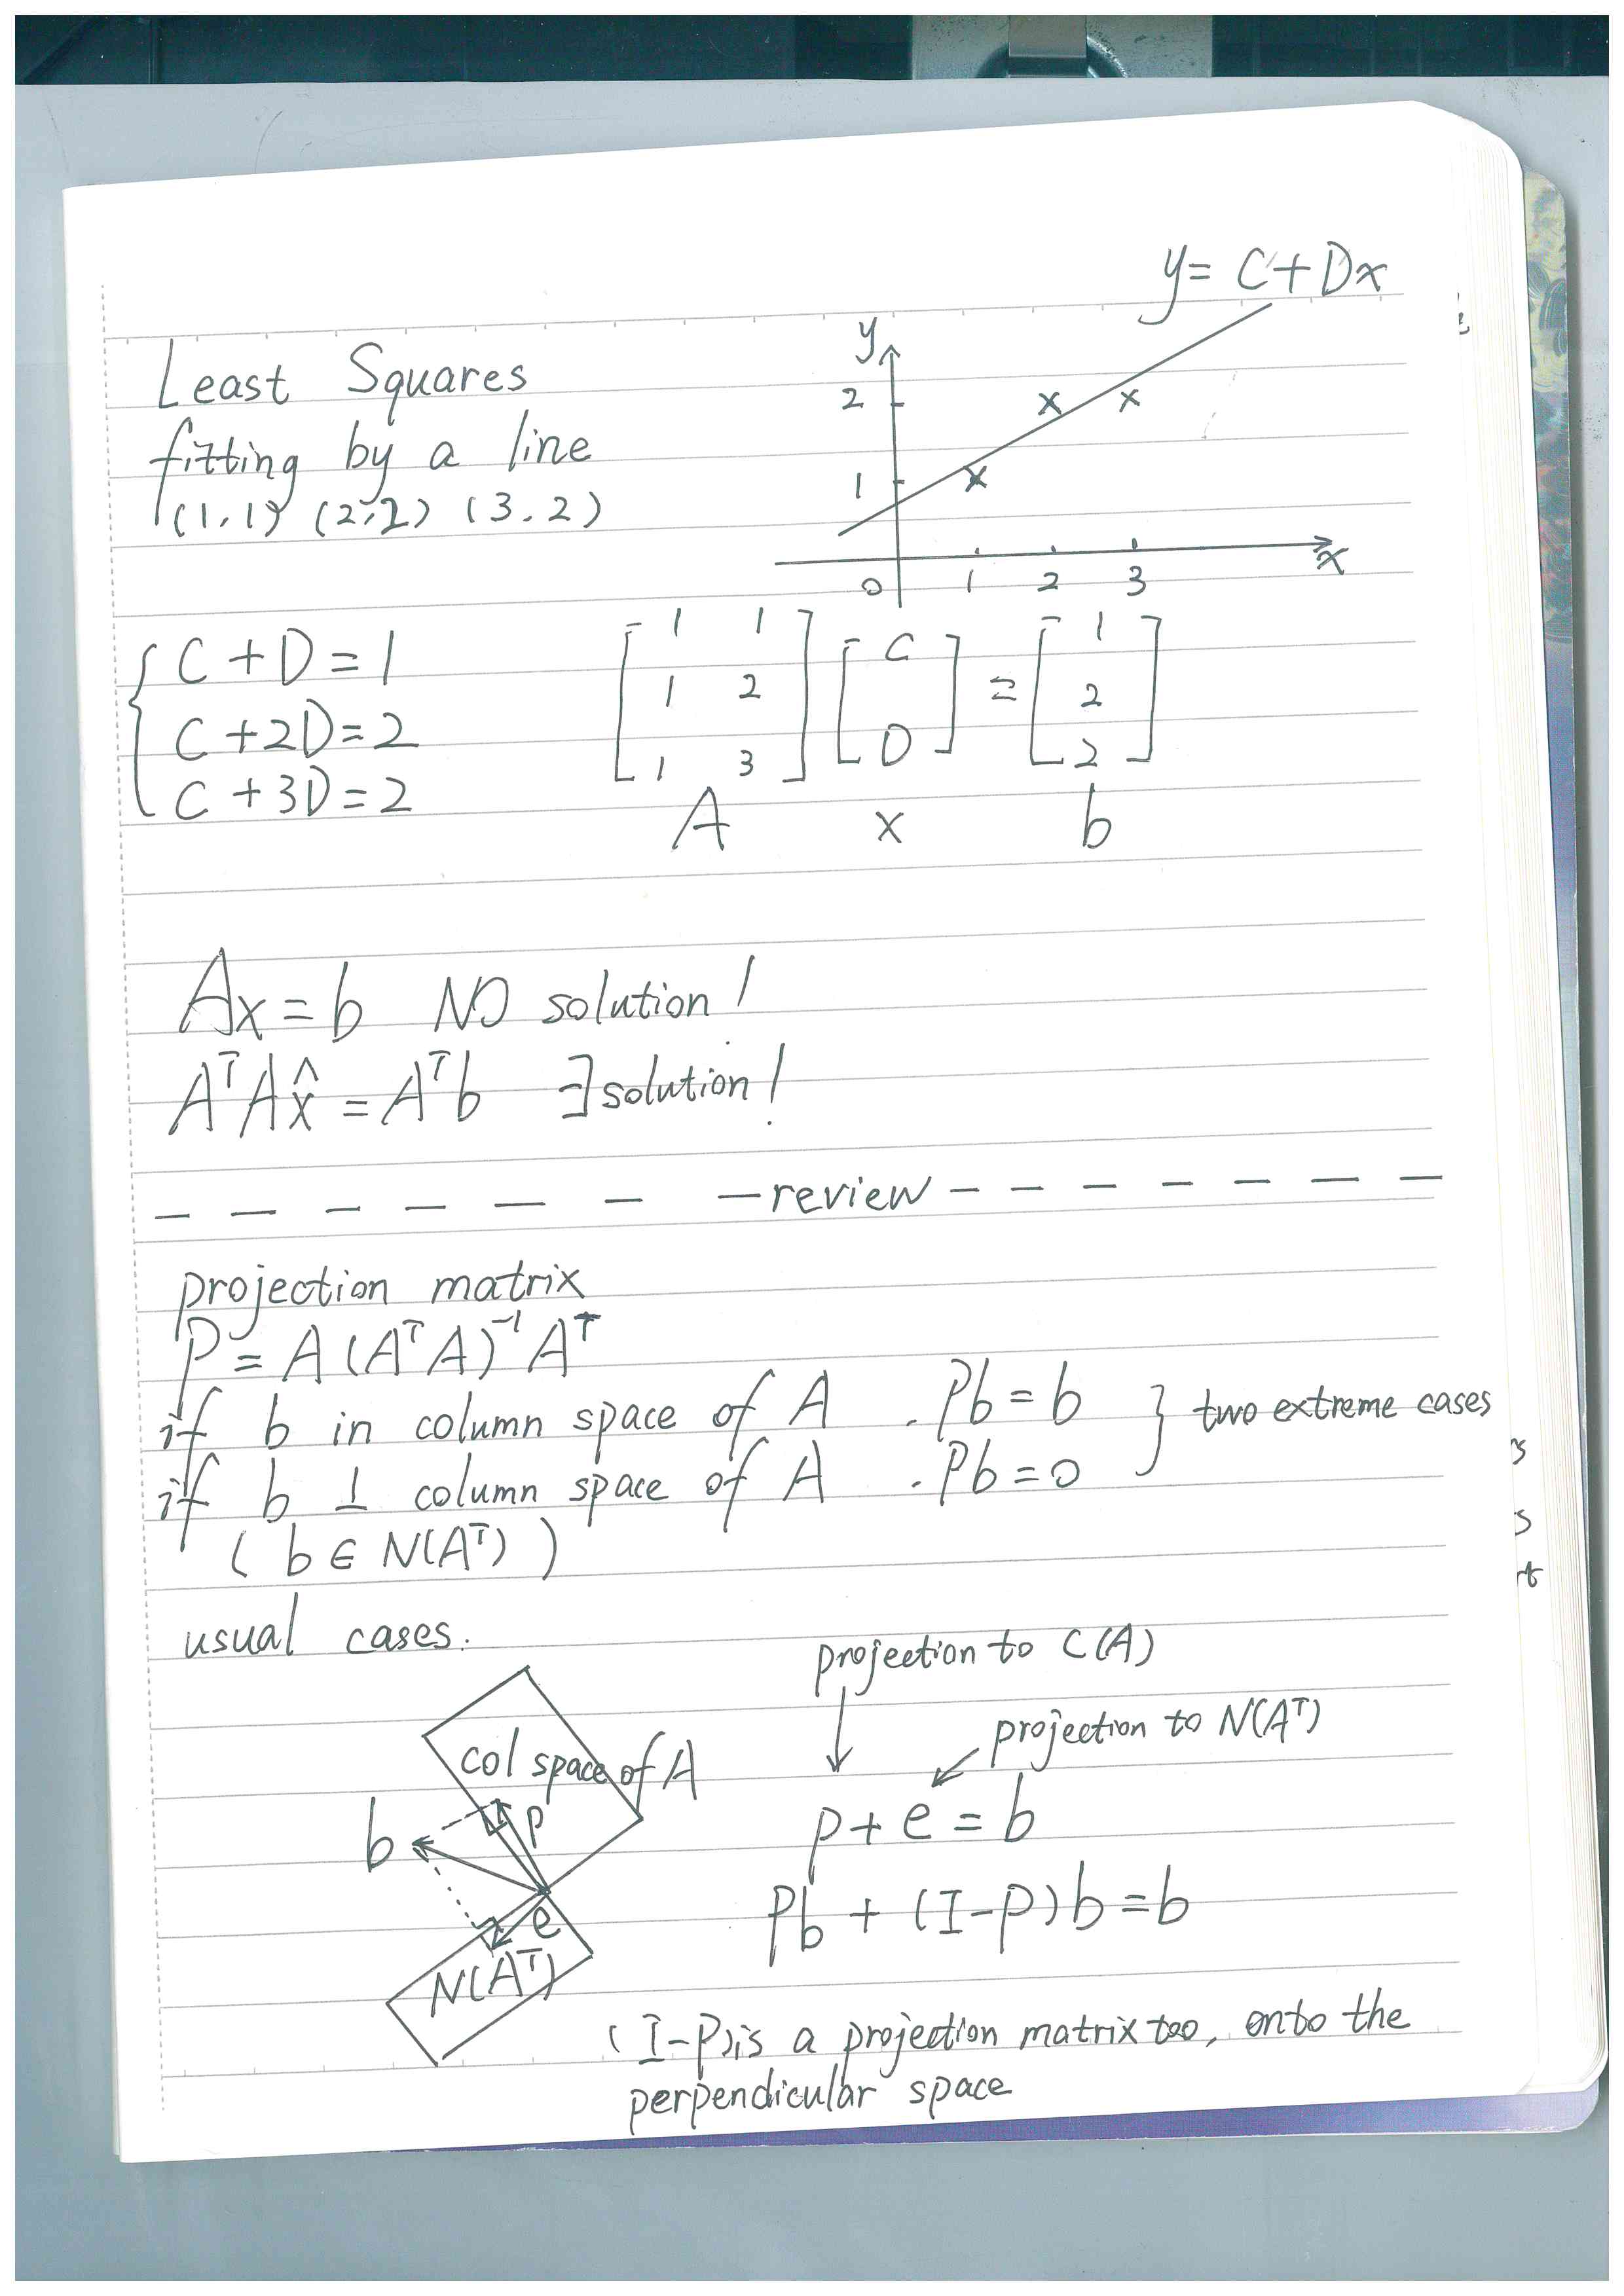 y = C + Dx
Least Squares
fitting by a line
(1,1) (2,2) (3.2)
y
2
1
0 1 2 3 x
C + D = 1
C + 2D = 2
C + 3D = 2
[1 1
1 2
1 3] [C
D] = [1
2
2]
A x b
Ax = b NO solution!
AᵀAx̂ = Aᵀb ∃ solution!
review
projection matrix
P = A(AᵀA)⁻¹Aᵀ
if b in column space of A . Pb = b } two extreme cases
if b ⊥ column space of A . Pb = 0
(b ∈ N(Aᵀ))
usual cases.
projection to C(A)
projection to N(Aᵀ)
col space of A
p
b
e
N(Aᵀ)
p + e = b
Pb + (I-P)b = b
(I-P) is a projection matrix too, onto the
perpendicular space